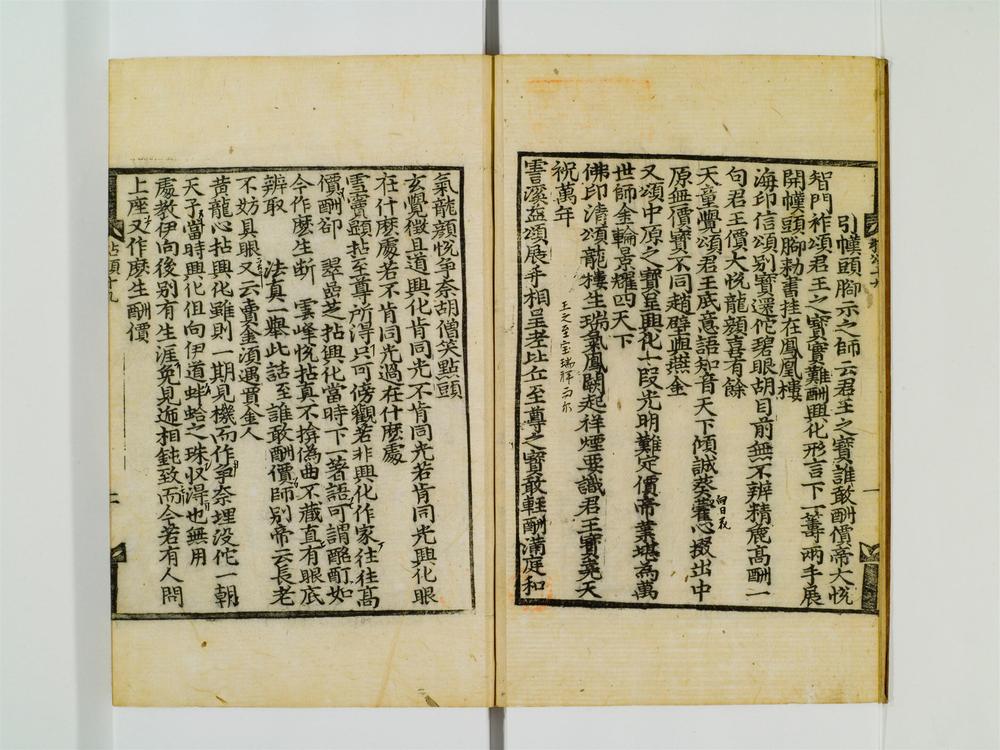 引幞頭脚示之師云君王之寶誰敢酬價帝大悅
智門祚頌君王之寶實難酬興化形言下一籌兩手展
開幞頭脚勅書挂在鳳凰樓
海印信頌別寶還佗碧眼胡目前無不辨精麁高酬一
句君王價大悅龍顔喜有餘
天童覺頌君王底意語知音天下傾誠葵藿心掇出中
向日義
原無價寶不同趙璧與燕金
又頌中原之寶呈興化一段光明難定價帝業堪為萬
世師金輪景耀四天下
佛印清頌龍樓生瑞氣鳳闕起祥煙要識君王寶堯天
祝萬年
王之至宝瑞祥而尓
霅溪益頌展手相呈老比丘至尊之寶敢輕酬滿庭和
氣龍顔悅爭奈胡僧笑點頭
玄覺徵且道興化肯同光不肯同光若肯同光興化眼
在什麽處若不肯同光過在什麽處
雪竇顯拈至尊所得只可傍觀若非興化作家往往高
價酬卻 翠嵓芝拈興化當時下一著語可謂酩酊如
今作麽生斷 雲峰悅拈真不揜偽曲不藏直有眼底
辨取 法真一舉此話至誰敢酬價師別帝云長老
不妨具眼又云賣金湏遇買金人
黄龍心拈興化雖則一期見機而作爭奈埋没佗一朝
天子當時興化但向伊道蚌蛤之珠収得也無用
處教伊向後別有生涯免見迤相鈍致而今若有人問
上座又作麽生酬價
拈頌十九
一
二